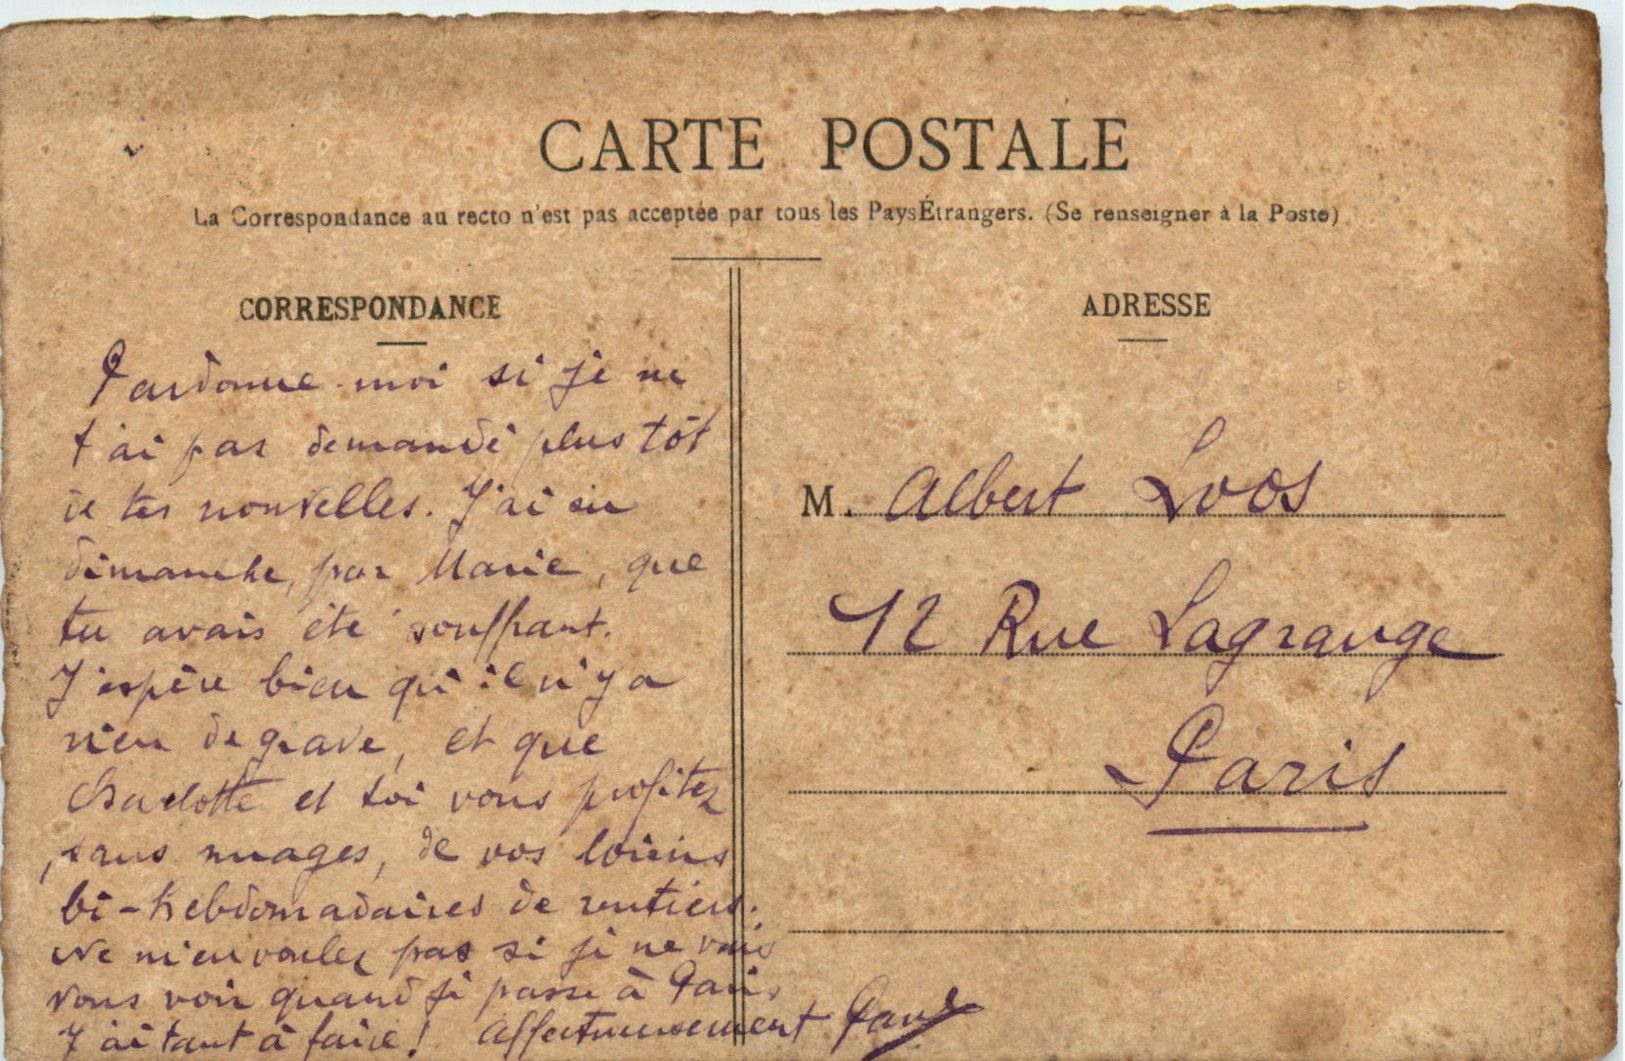 CARTE POSTALE
La Correspondance au recto n'est pas acceptée par tous les Pays Étrangers. (Se renseigner à la Poste)
CORRESPONDANCE
Pardonne-moi si je ne
t'ai pas demandé plus tôt
de tes nouvelles. J'ai su
dimanche, par Marie, que
tu avais été souffrant.
J'espère bien qu'il n'y a
rien de grave, et que
Charlotte et toi vous profitez
, sans nuages, de vos loisirs
bi-hebdomadaires de rentiers.
Ne m'en voulez pas si je ne vais
vous voir quand je passe à Paris,
J'ai tant à faire! Affectueusement
ADRESSE
M. Albert Loos
12 Rue Lagrange
Paris